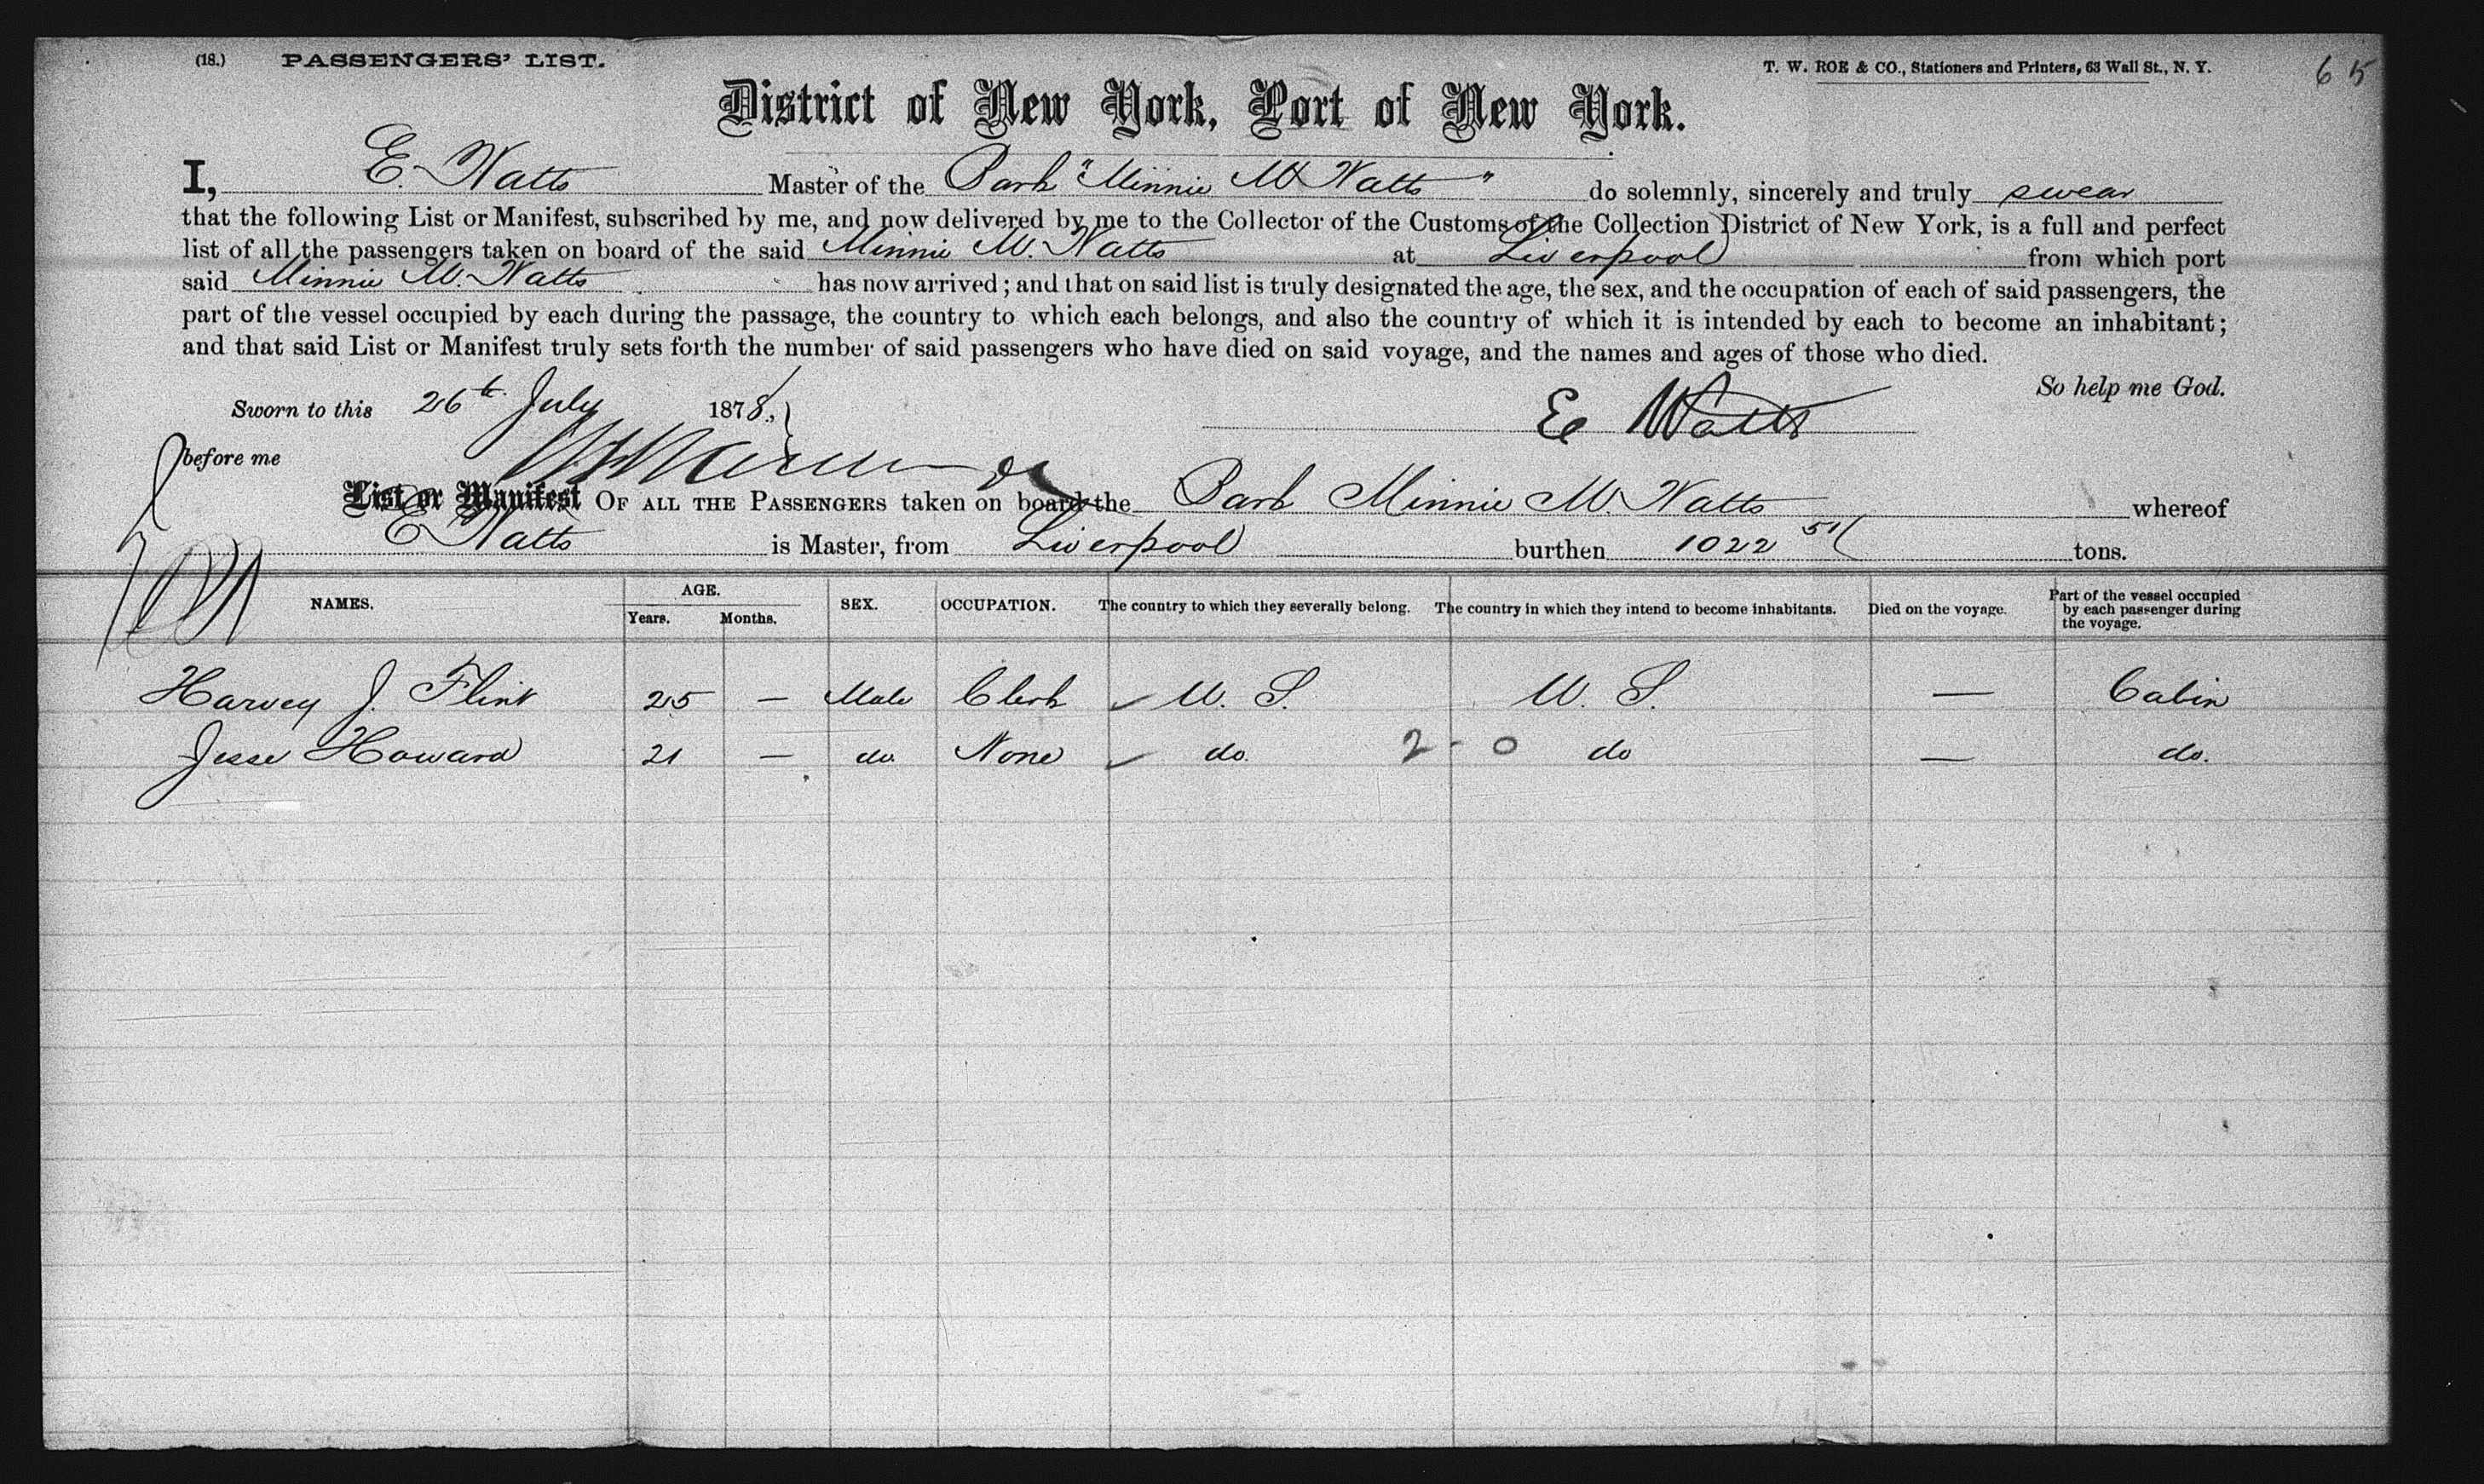 (18.) PASSENGERS' LIST. T. W. ROE & CO., Stationers and Printers, 63 Wall St., N. Y. 65
District of New York, Port of New York.
I, E. Watts Master of the Bark "Minnie M Watts" do solemnly, sincerely and truly swear
that the following List or Manifest, subscribed by me, and now delivered by me to the Collector of the Customs of the Collection District of New York, is a full and perfect
list of all the passengers taken on board of the said Minnie M. Watts at Liverpool from which port
said Minnie M. Watts has now arrived; and that on said list is truly designated the age, the sex, and the occupation of each of said passengers, the
part of the vessel occupied by each during the passage, the country to which each belongs, and also the country of which it is intended by each to become an inhabitant;
and that said List or Manifest truly sets forth the number of said passengers who have died on said voyage, and the names and ages of those who died.
So help me God.
Sworn to this 26th July 1878, E Watts
before me
List or Manifest OF ALL THE PASSENGERS taken on board the Bark Minnie M. Watts whereof
E Watts is Master, from Liverpool burthen 1022 51/ tons.
NAMES. AGE. Years. Months. SEX. OCCUPATION. The country to which they severally belong. The country in which they intend to become inhabitants. Died on the voyage. Part of the vessel occupied by each passenger during the voyage.
Harvey J. Flint 25 — Male Clerk ✓ U. S. U. S. — Cabin
Jesse Howard 21 — do. None ✓ do. 2-0 do — do.